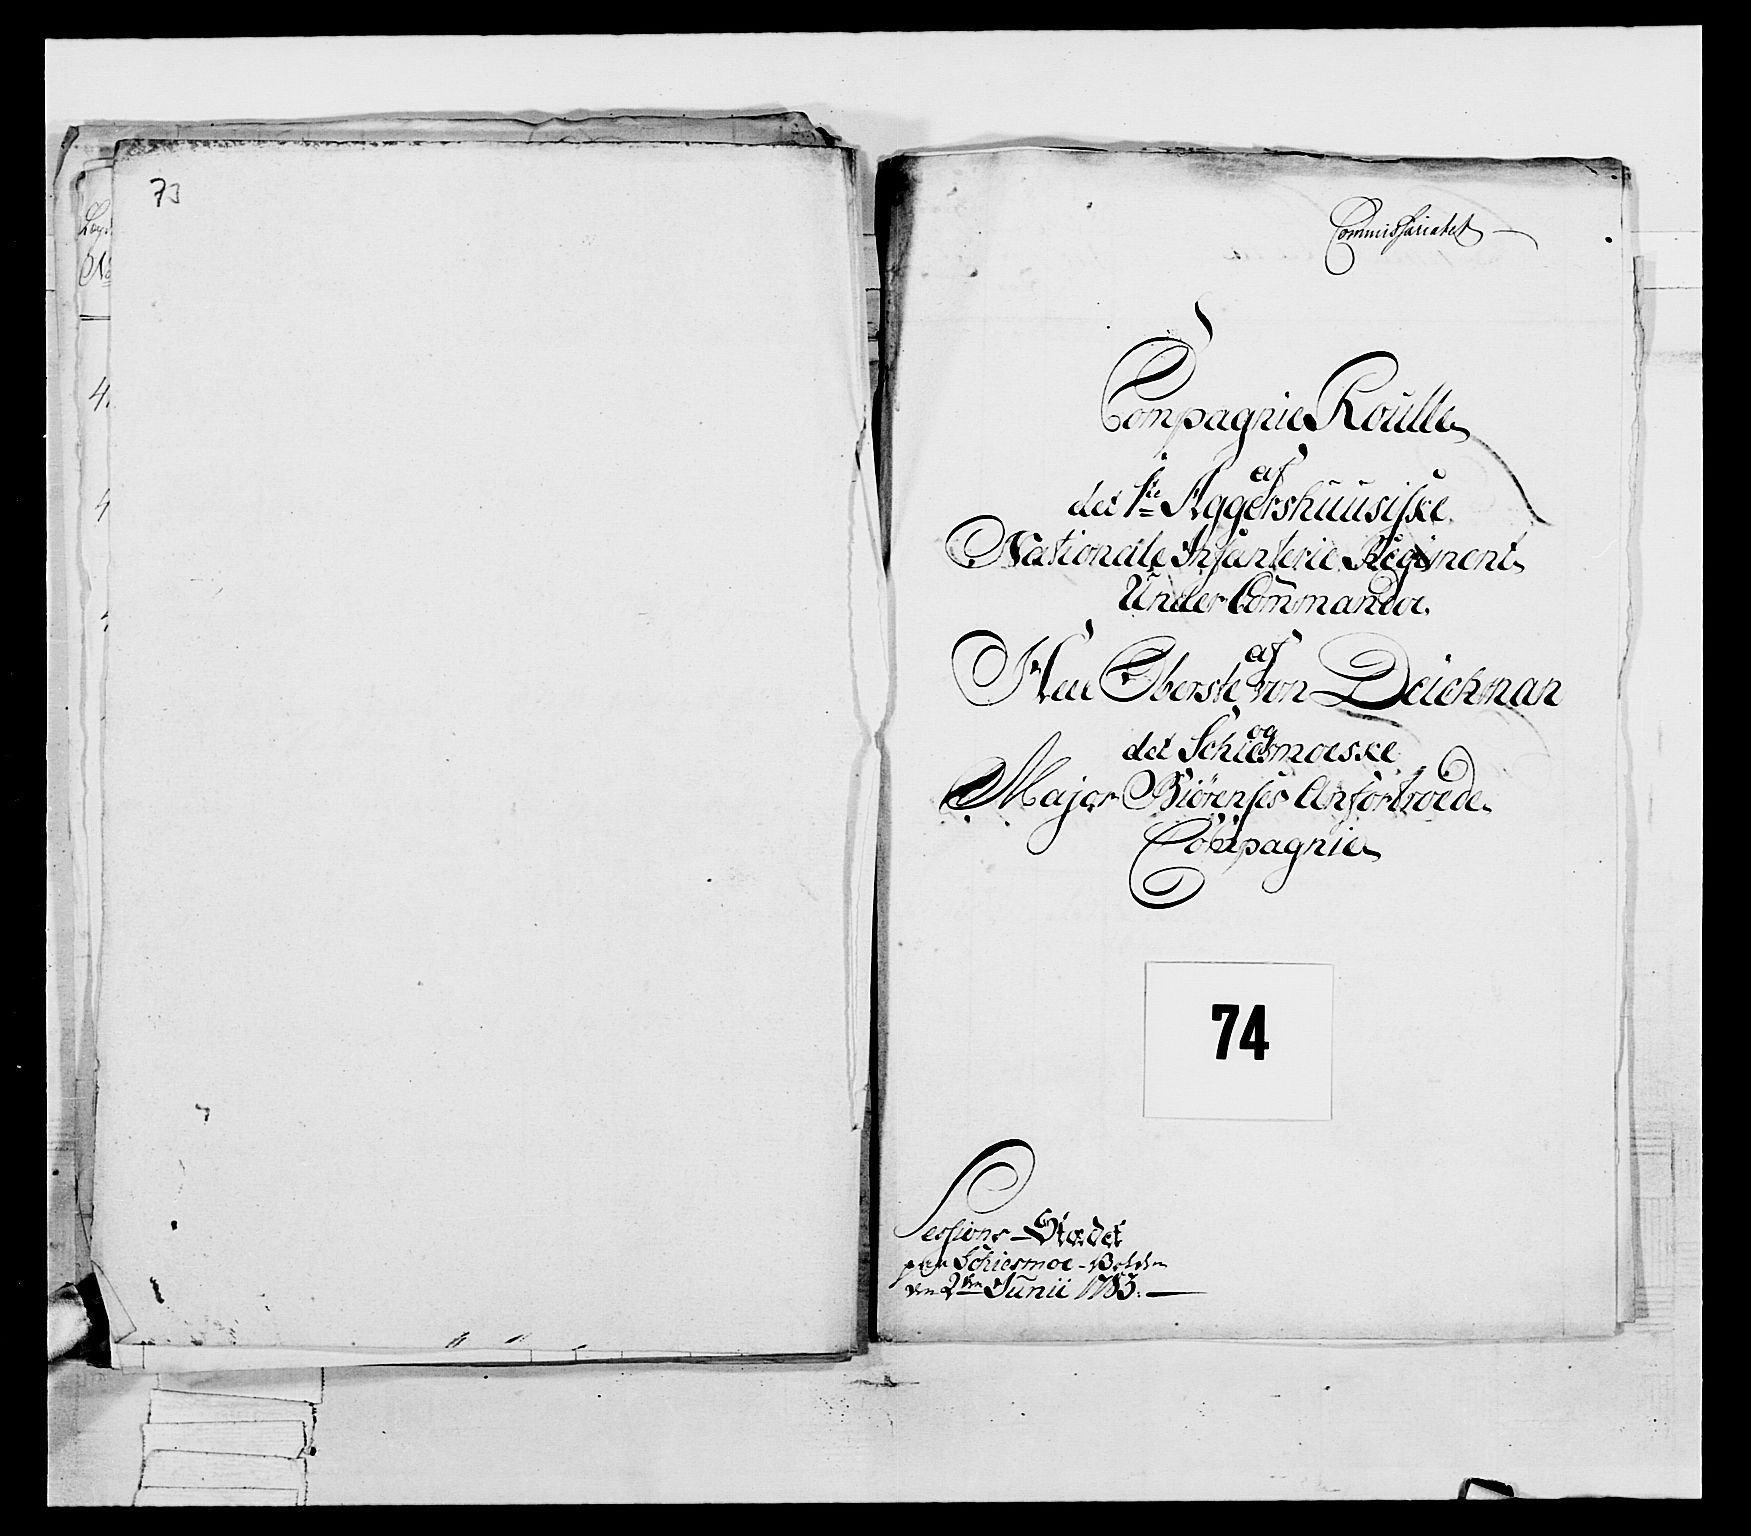 73
No
4
4
Commissariatet
Compagnie Roulle
af
det 1te Aggershuusiske
Nationale Infanterie Regiment
Under Commando
af
Herr Oberste von Deichman
og
det Schiesmoeske
Major Biørenses Anfortroede
Compagnie
74
Sessions-Stædet
paa Schiesmoe-Volden
den 2den Junii 1783.